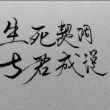 生死契阔
与君成说